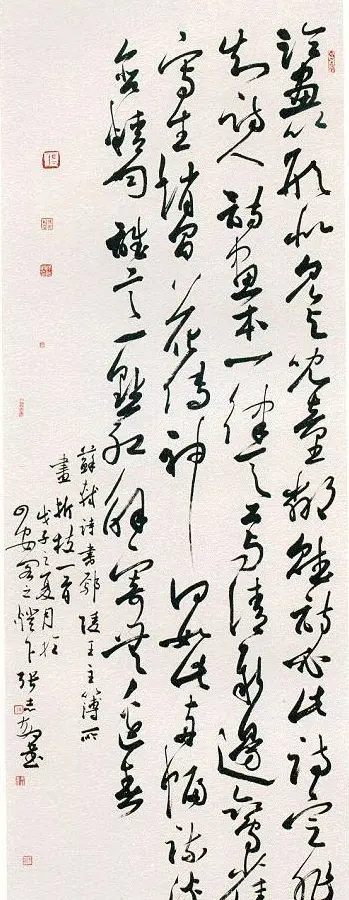 論畫以形似見与兒童鄰賦詩必此詩定非
知詩人詩畫本一律天工与清新邊鸞雀
寫生趙昌花傳神何如此兩幅疏淡
含精勻誰言一點紅解寄無邊春
蘇軾詩書鄢陵王主簿所
畫折枝一首
戊子之夏月於
安 之燈下張志 書